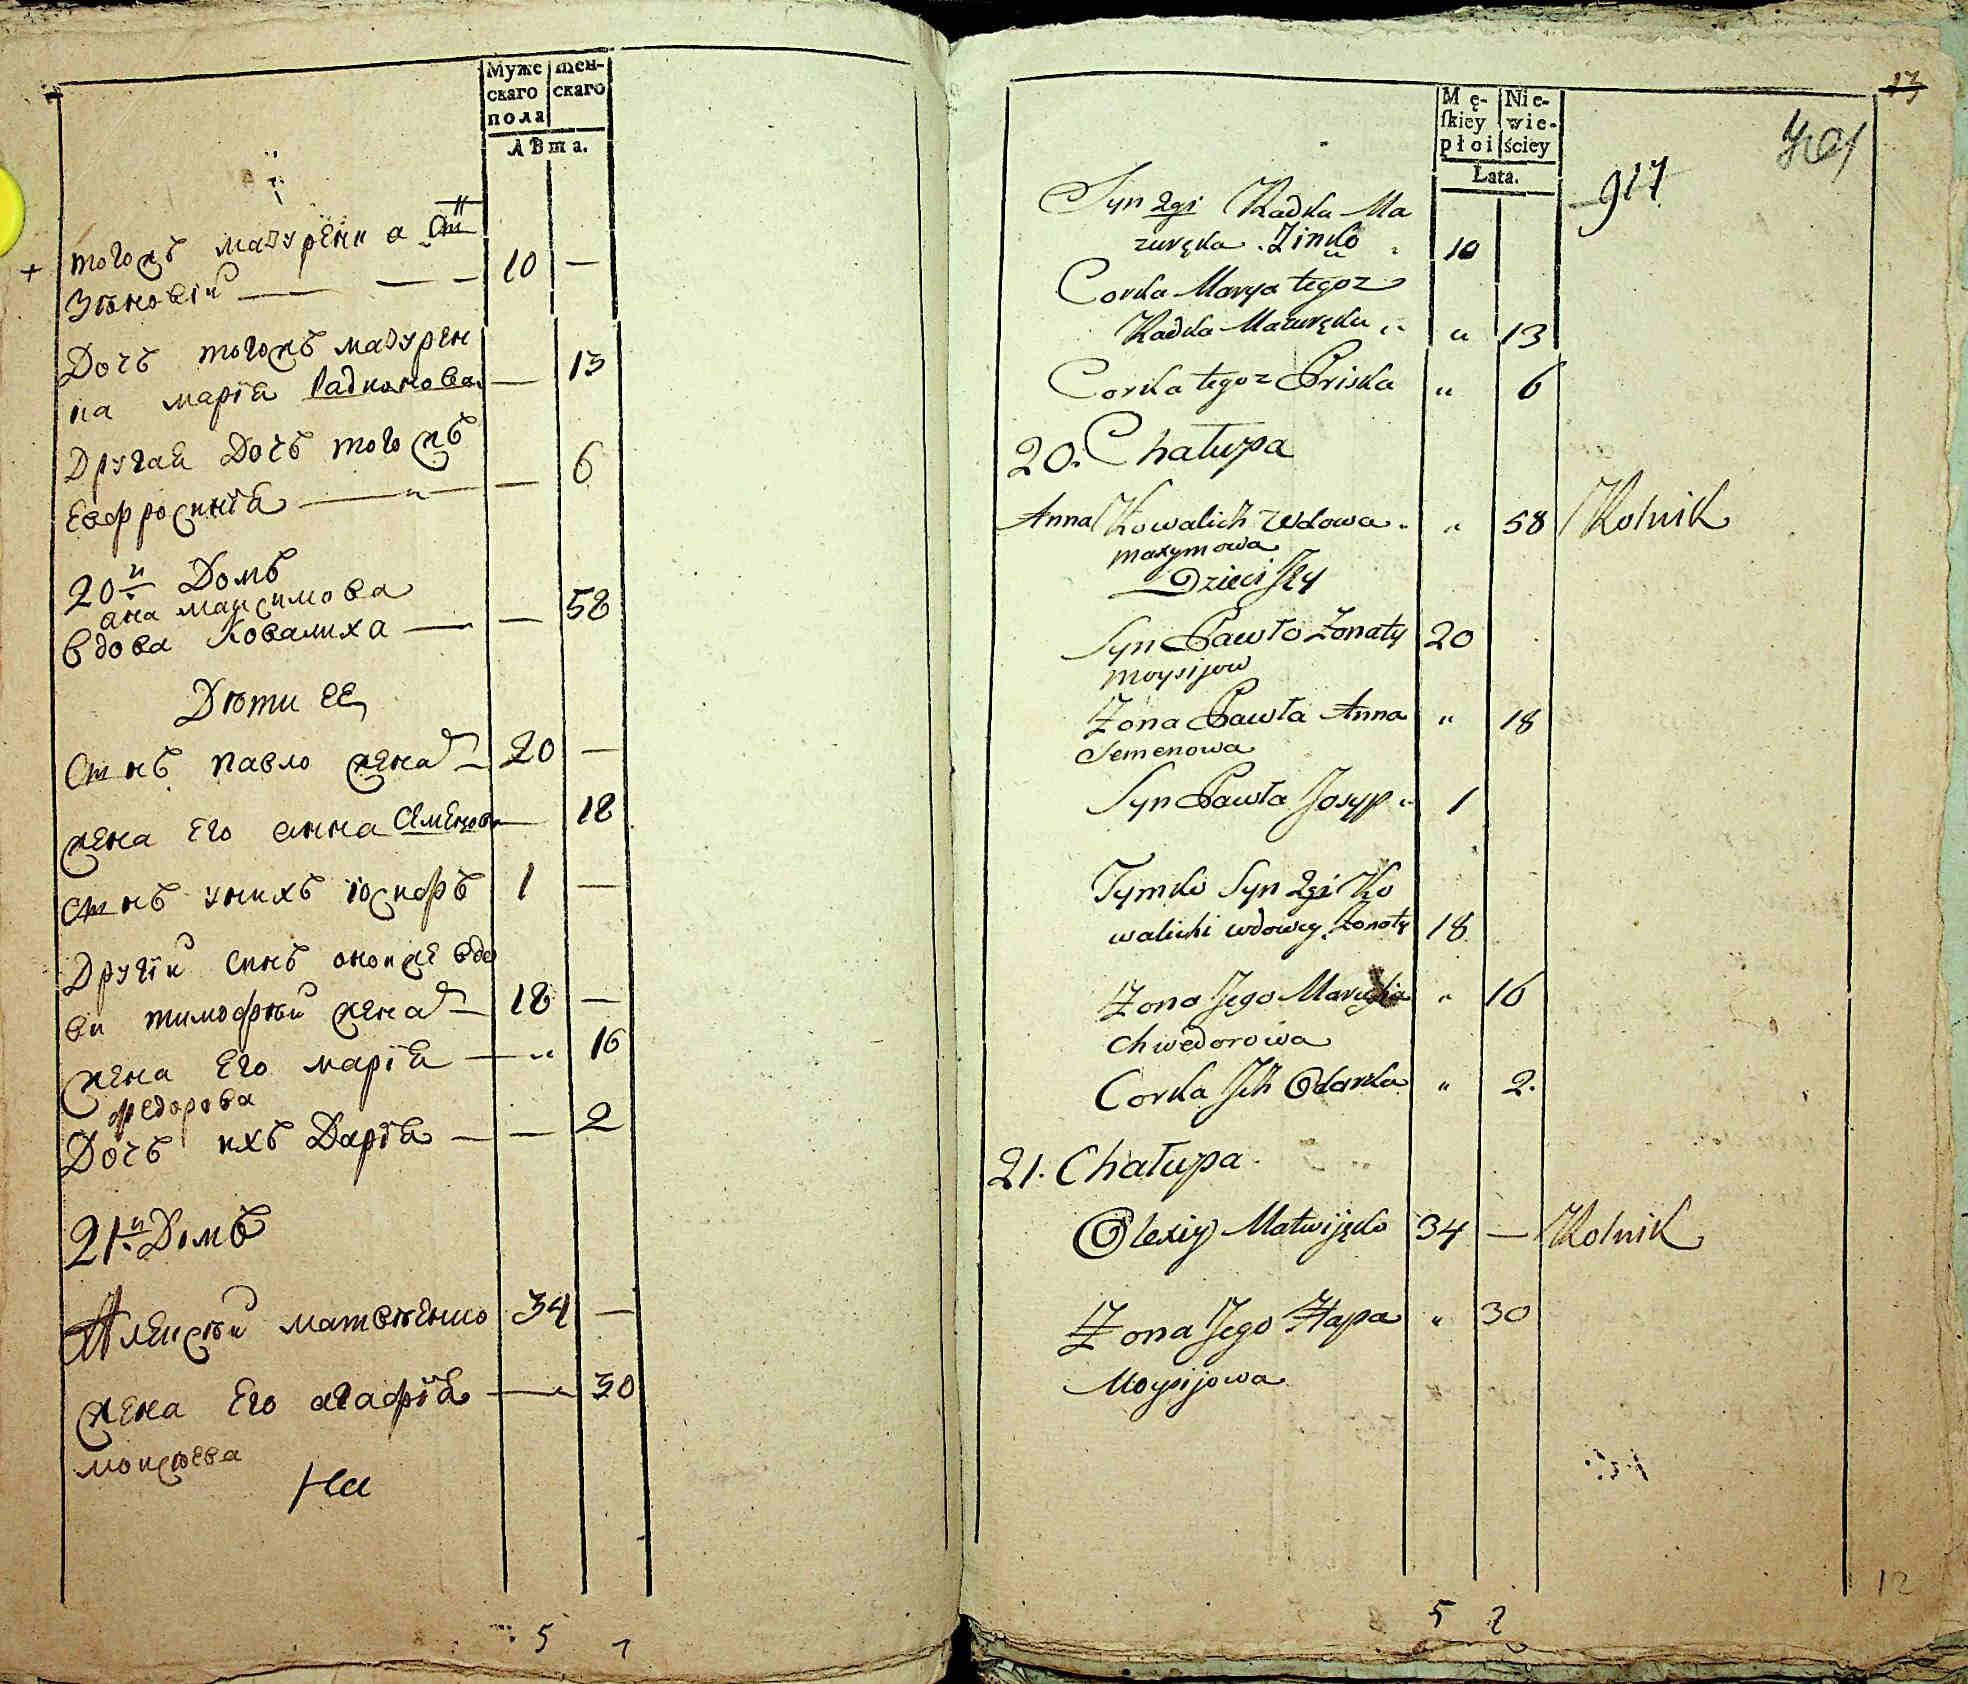 Муже
скаго
пола
жен-
скаго
лѣта.
тогожъ мазуренка
Зѣновій — 10 —
Дочь тогожъ мазурен
ка марія Радкокова — 13
Другая Дочь тогожъ
Евфросинія — — 6
20й Домъ
ана максимова
вдова Ковалиха — — 58
Дѣти ее
Сынъ павло жена 20 —
жена Его анна Семенова — 18
сынъ унихъ іосифъ 1 —
Другій синъ оноиже вдо
ви тимофѣй жена 18 —
жена Его марія — „ 16
федорова
Дочь ихъ Дарія — — 2
21й Домъ
Алексѣй матвѣенко 34 —
жена Его агафія — „ 30
моисѣева
На
5 7
Mę-
skiey
płci
Nie-
wie-
ściey
Lata.
13
917
Syn 2gi Radka Ma
zuręka Zinko 10
Corka Marya tegoz
Radka Mazuręka „ 13
Corka tegoz Priska „ 6
20. Chałupa
Anna Kowalich Wdowa „ 58 Rolnik
maxymowa
Dzieci Jey
Syn Pawło Żonaty 20
moysijow
Żona Pawła Anna „ 18
Semenowa
Syn Pawła Josyp 1
Tymko Syn 2gi Ko
walichi wdowy Żonaty 18
Żona Jego Marucha „ 16
Chwedorowa
Corka Ich Odarka „ 2.
21. Chałupa
Olexiy Matwijęko 34 — Rolnik
Żona Jego Hapa „ 30
Moysijowa
12
5 7